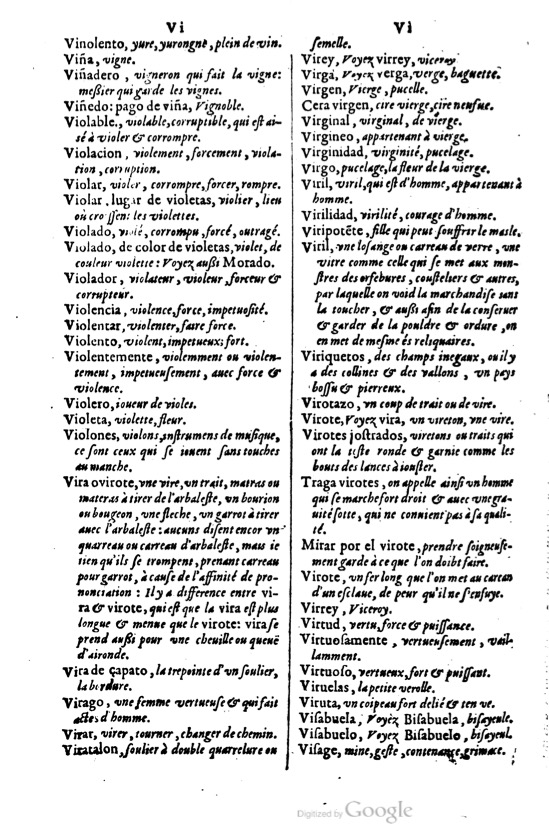 Vi
Vinolento, yure, yurongne, plein de vin.
Viña, vigne.
Viñadero, vigneron qui fait la vigne:
meßier qui garde les vignes.
Viñedo: pago de viña, Vignoble.
Violable., violable, corruptible, qui est ai-
sé à violer & corrompre.
Violacion, violement, forcement, viola-
tion, corruption.
Violar, violer, corrompre, forcer, rompre.
Violar, lugar de violetas, violier, lieu
où croissent les violettes.
Violado, violé, corrompu, forcé, outragé.
Violado, de color de violetas, violet, de
couleur violette: Voyez außi Morado.
Violador, violateur, violeur, forceur &
corrupteur.
Violencia, violence, force, impetuosité.
Violentar, violenter, faire force.
Violento, violent, impetueux; fort.
Violentemente, violemment ou violen-
tement, impetueusement, auec force &
violence.
Violero, ioueur de violes.
Violeta, violette, fleur.
Violones, violons, instrumens de musique,
ce sont ceux qui se iouent sans touches
au manche.
Vira o virote, vne vire, vn trait, matras ou
materas à tirer de l'arbaleste, vn bourion
ou bougeon, vne fleche, vn garrot à tirer
auec l'arbaleste: aucuns disent encor vn
quarreau ou carreau d'arbaleste, mais ie
tien qu'ils se trompent, prenant carreau
pour garrot, à cause de l'affinité de pro-
nonciation: Il y a difference entre vi-
ra & virote, qui est que la vira est plus
longue & menue que le virote: vira se
prend außi pour vne cheuille ou queuë
d'aironde.
Vira de çapato, la trepointe d'vn soulier,
la bordure.
Virago, vne femme vertueuse & qui fait
actes d'homme.
Virar, virer, tourner, changer de chemin.
Viratalon, soulier à double quarrelure ou
Vi
semelle.
Virey, Voyez virrey, viceroy
Virga, Voyez verga, verge, baguette.
Virgen, Vierge, pucelle.
Cera virgen, cire vierge, cire neufue.
Virginal, virginal, de vierge.
Virgineo, appartenant à vierge.
Virginidad, virginité, pucelage.
Virgo, pucelage, la fleur de la vierge.
Viril, viril, qui est d'homme, appartenant à
homme.
Virilidad, virilité, courage d'homme.
Viripotẽte, fille qui peut souffrir le masle.
Viril, vne losange ou carreau de verre, vne
vitre comme celle qui se met aux mon-
stres des orfebures, cousteliers & autres,
par laquelle on void la marchandise sans
la toucher, & außi afin de la conseruer
& garder de la pouldre & ordure, on
en met de mesme és reliquaires.
Viriquetos, des champs inegaux, ou il y
a des collines & des vallons, vn pays
bossu & pierreux.
Virotazo, vn coup de trait ou de vire.
Virote, Voyez vira, vn vireton, vne vire.
Virotes jostrados, viretons ou traits qui
ont la teste ronde & garnie comme les
bouts des lances à iouster.
Traga virotes, on appelle ainsi vn homme
qui se marche fort droit & auec vne gra-
uité sotte, qui ne conuient pas à sa quali-
té.
Mirar por el virote, prendre soigneuse-
ment garde à ce que l'on doibt faire.
Virote, vn fer long que l'on met au carcan
d'vn esclaue, de peur qu'il ne s'enfuye.
Virrey, Viceroy.
Virtud, vertu, force & puissance.
Virtuosamente, vertueusement, vail-
lamment.
Virtuoso, vertueux, fort & puissant.
Viruelas, la petite verolle.
Viruta, vn coipeau fort delié & ten ve.
Visabuela, Voyez Bisabuela, bisayeule.
Visabuelo, Voyez Bisabuelo, bisayeul.
Visage, mine, geste, contenance, grimace.
Digitized by Google